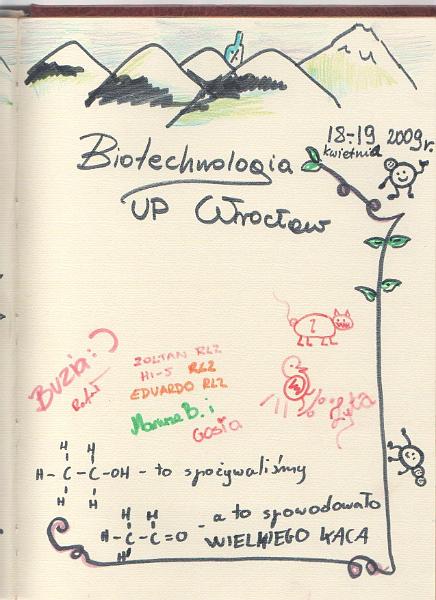 18-19 2009r.
kwietnia
Biotechnologia
UP Wrocław
Buzia :)
ZOLTAN RLZ
HI-5 RLZ
EDUARDO RLZ
B. i
Gosia
H H
H-C-C-OH - to spożywaliśmy
H H
H H
H-C-C=O - a to spowodowało
H WIELKIEGO KACA